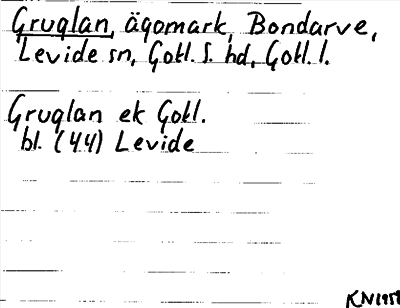 Gruglan, ägomark, Bondarve,
Levide sn, Gotl. S. hd, Gotl. l.
Gruglan ek Gotl.
bl. (44) Levide